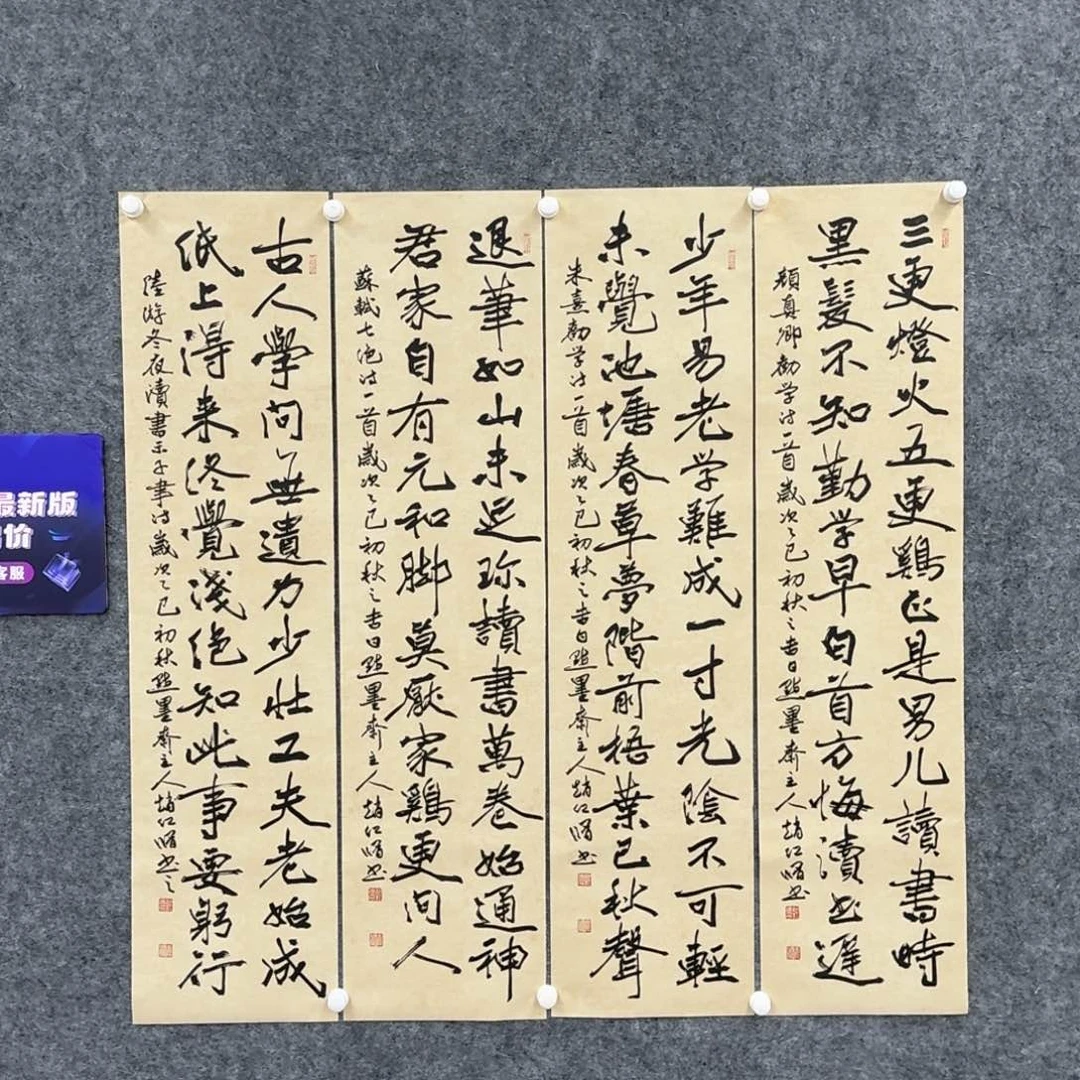 三更燈火五更鷄正是男儿讀書時
黑髮不知勤学早白首方悔讀书遲
顏真卿勸学诗一首歲次乙巳初秋之吉日點墨齋主人趙江
少年易老学難成一寸光陰不可輕
未覺池塘春草夢階前梧葉已秋聲
朱熹勸学诗一首歲次乙巳初秋之吉日點墨齋主人趙江
退筆如山未足珎讀書萬卷始通神
君家自有元和脚莫厭家鷄更问人
蘇軾七绝诗一首歲次乙巳初秋之吉日點墨齋主人趙江
古人學问無遺力少壮工夫老始成
纸上得来终覺淺绝知此事要躬行
陸游冬夜讀書示子聿诗歲次乙巳初秋點墨齋主人趙江
最新版
价
客服